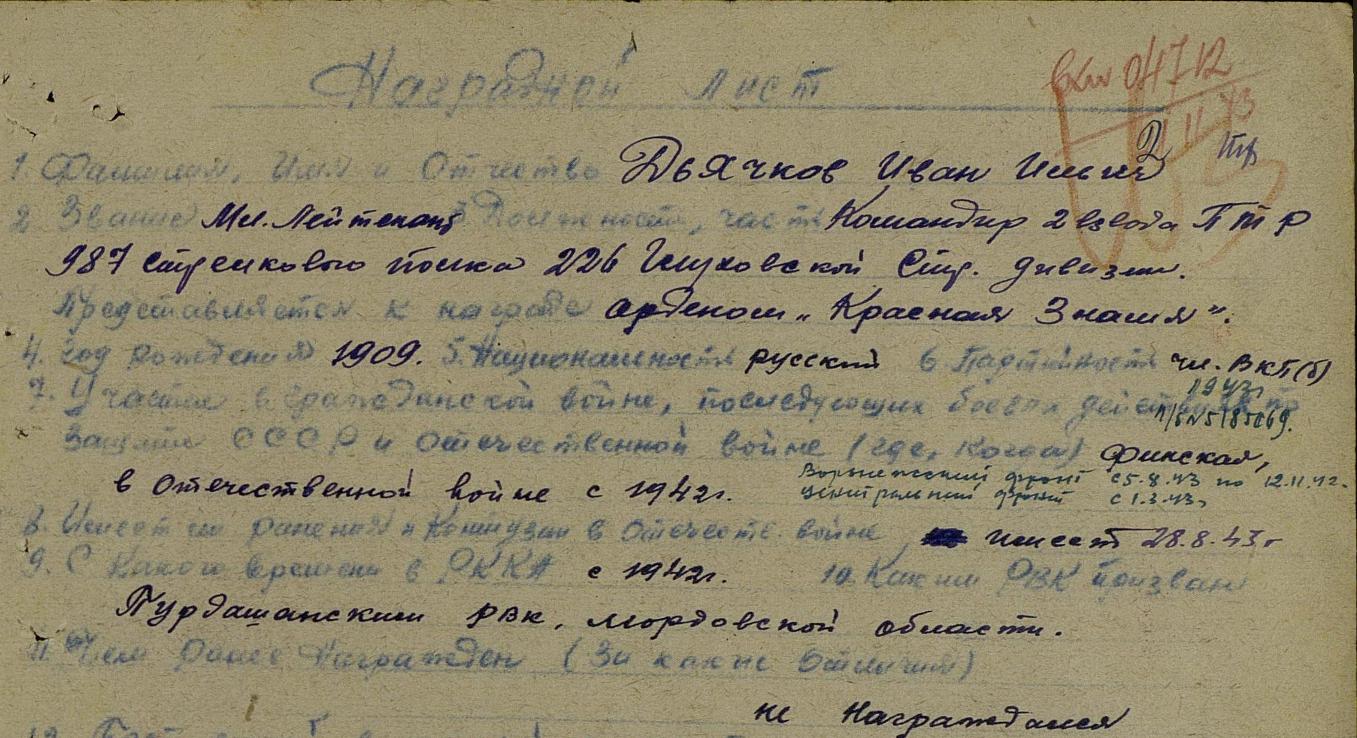 Наградной лист
вхи 04712
11 43
1. Фамилия, Имя и Отчество Дьячков Иван
2. Звание Мл. Лейтенант 3 Должность, часть Командир 2 взвода ПТР
987 стрелкового полка 226 Глуховской Стр. дивизии.
Представляется к награде орденом „Красная Знамя".
4. Год рождения 1909. 5. Национальность русский 6 Партийность чл. ВКП(б)
1943г
7. Участие в гражданской войне, последующих боевых действиях по
п/б N5185869.
Защите СССР и отечественной войне (где, когда) Финская,
в Отечественной войне с 1942г. Воронежский фронт с 5.8.43 по 12.11.42.
Центральный фронт с 1.3.43г
8. Имеет ли ранения и контузии в отечеств. войне имеет 28.8.43г
9. С какого времени в РККА с 1942г. 10. Каким РВК призван
Пурдашанским рвк, мордовской области.
11. Чем ранее награжден (За какие отличия)
не награждался